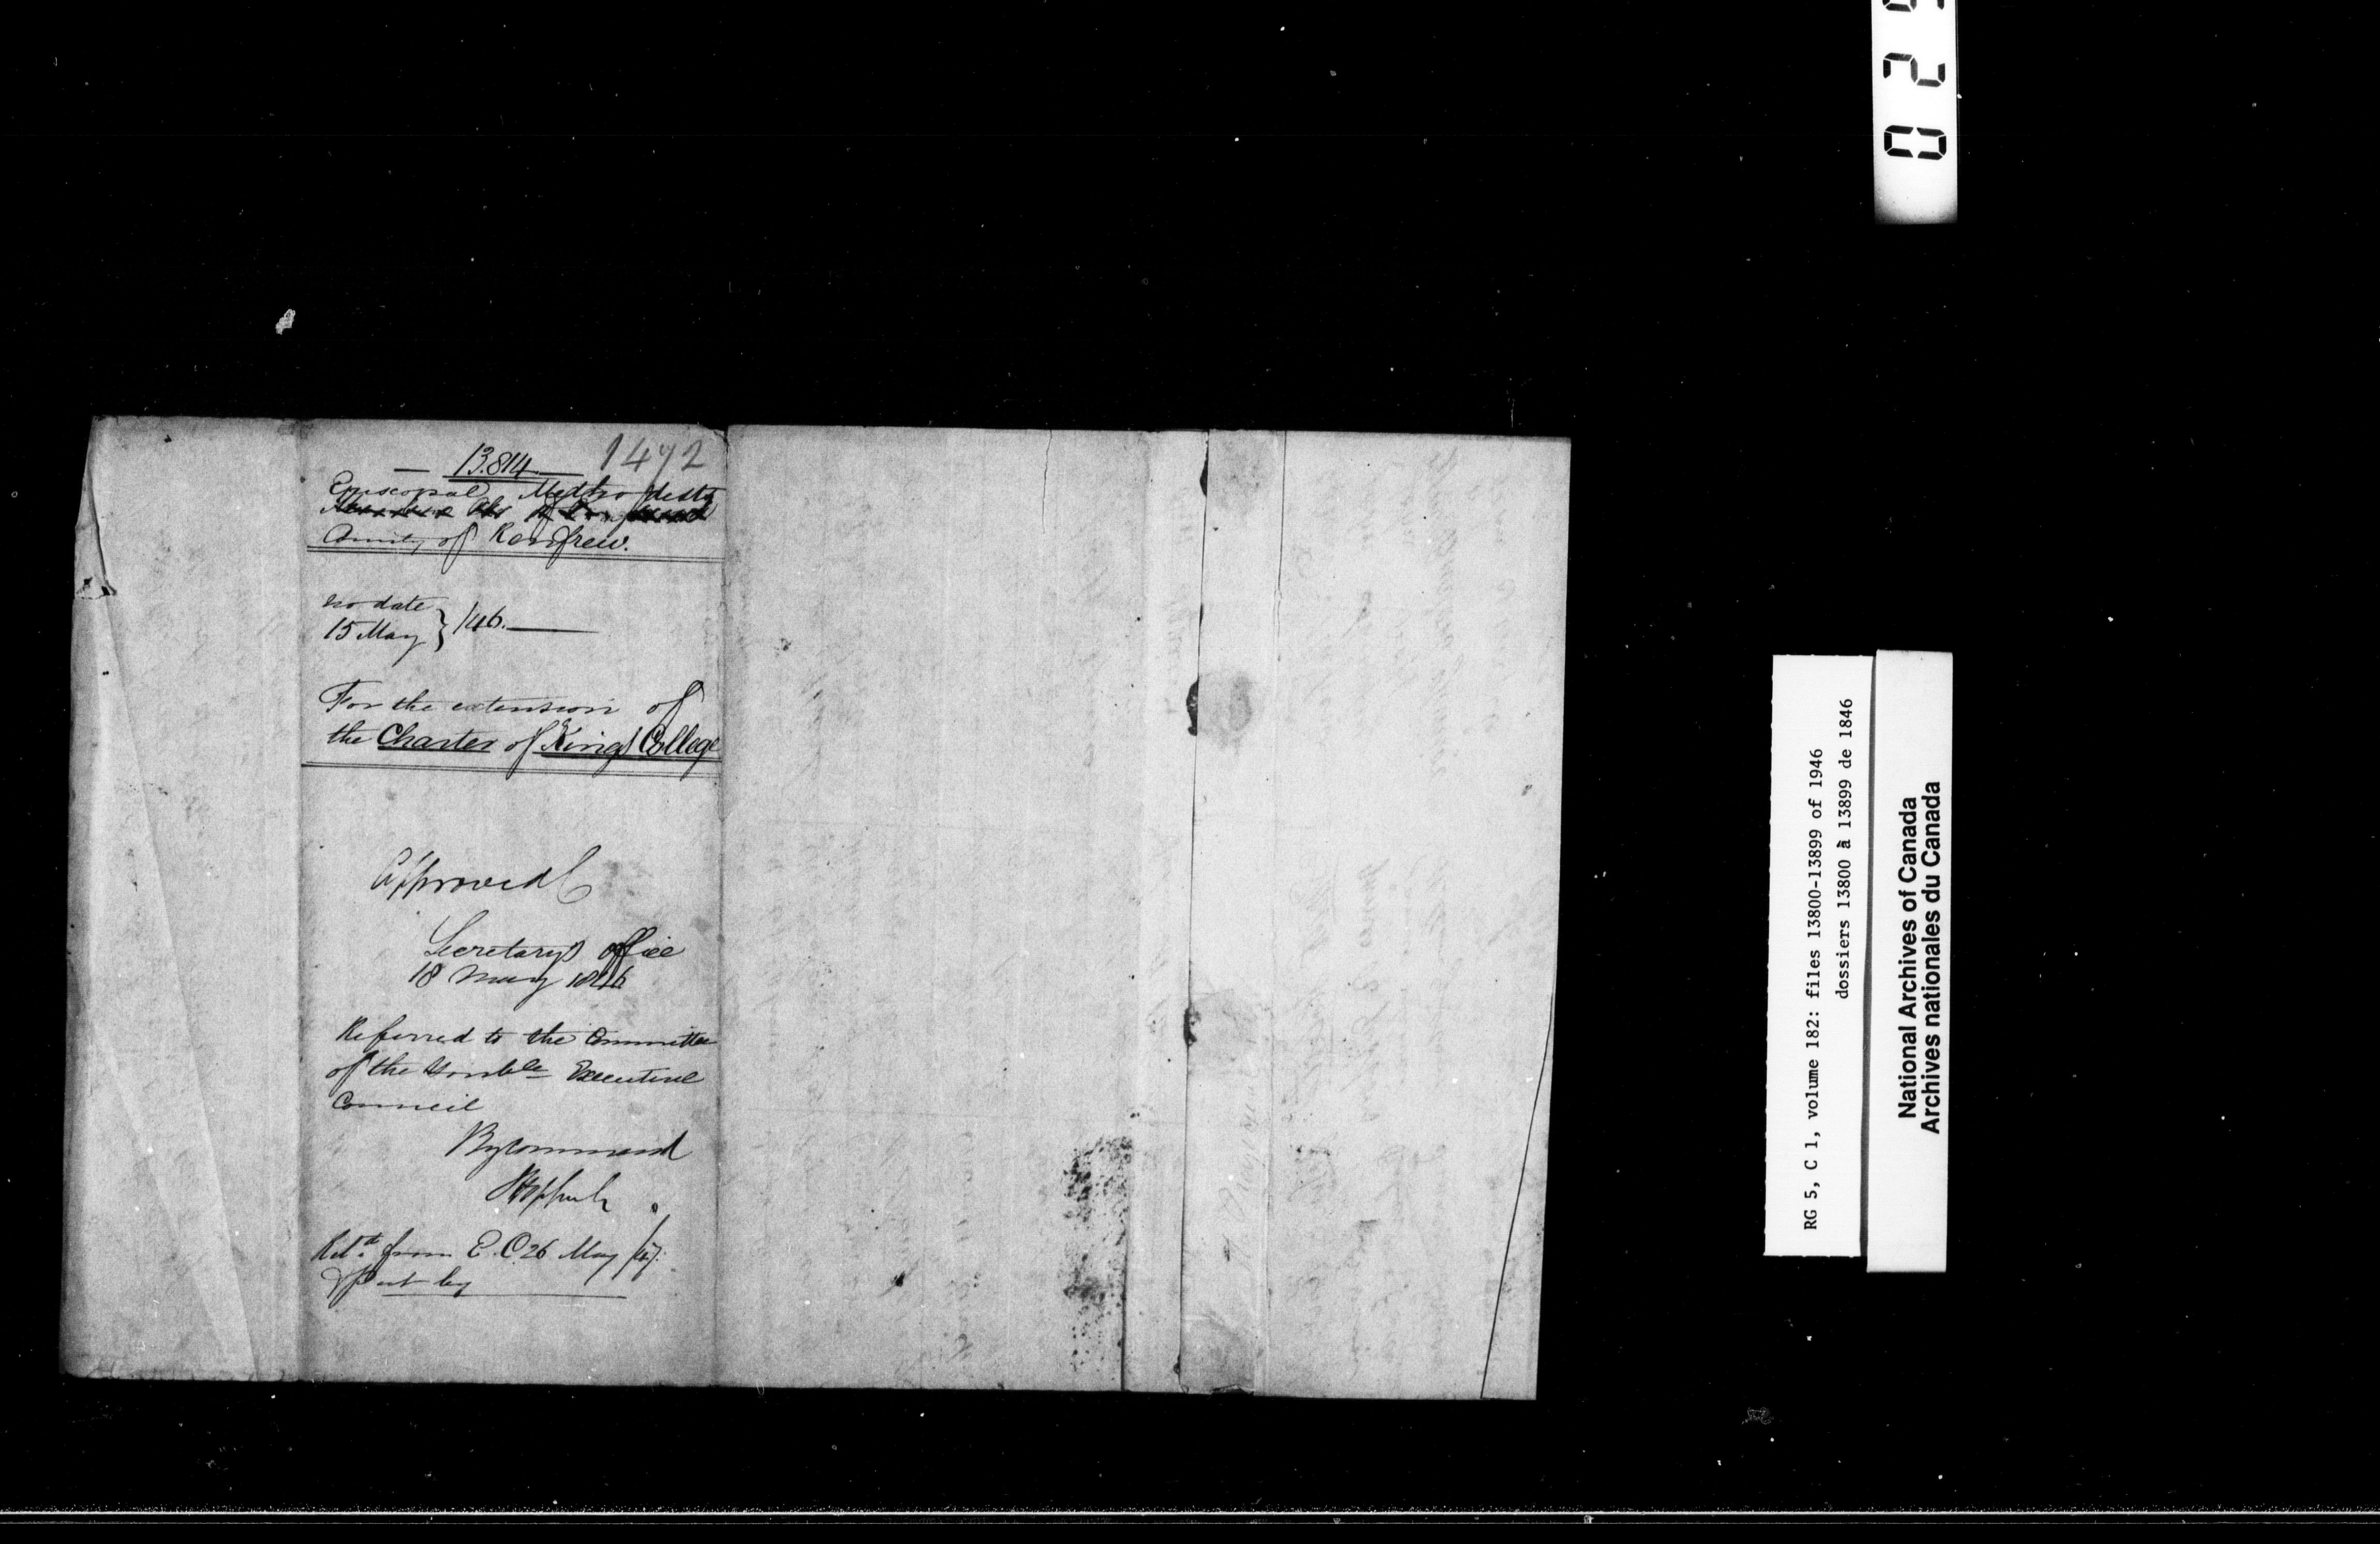 — 13.814 — 1472
Episcopal Methodists
County of Renfrew.
no date
15 May } /46. —
For the extension of
the Charter of King's College
Approved
Secretary's office
18 May 1846
Referred to the Committee
of the Honble Executive
Council
By Command
Retd from E.C. 26 May /47.
& put by
RG 5, C 1, volume 182: files 13800-13899 of 1946
dossiers 13800 à 13899 de 1846
National Archives of Canada
Archives nationales du Canada